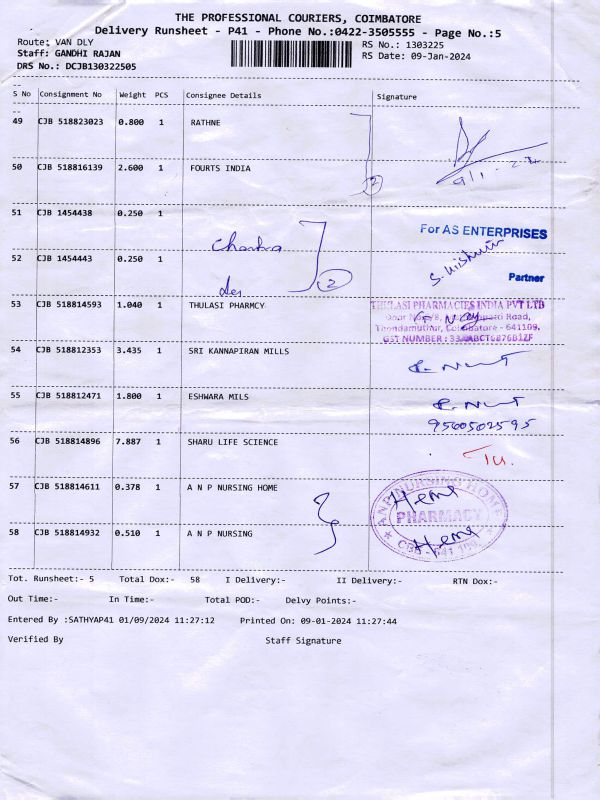 THE PROFESSIONAL COURIERS, COIMBATORE
Delivery Runsheet - P41 - Phone No.:0422-3505555 - Page No.:5
Route: VAN DLY
RS No.: 1303225
Staff: GANDHI RAJAN
RS Date: 09-Jan-2024
DRS No.: DCJB130322505
S No Consignment No Weight PCS Consignee Details Signature
49 CJB 518823023 0.800 1 RATHNE
50 CJB 518816139 2.600 1 FOURTS INDIA
2
9/1-24
51 CJB 1454438 0.250 1
For AS ENTERPRISES
52 CJB 1454443 0.250 1
2
Partner
53 CJB 518814593 1.040 1 THULASI PHARMCY
THULASI PHARMACIES INDIA PVT LTD
Road,
Thondamuthur, Coimbatore - 641109.
GST NUMBER :
54 CJB 518812353 3.435 1 SRI KANNAPIRAN MILLS
55 CJB 518812471 1.800 1 ESHWARA MILS
9500502595
56 CJB 518814896 7.887 1 SHARU LIFE SCIENCE
57 CJB 518814611 0.378 1 A N P NURSING HOME
ANP NURSING HOME
Heme
PHARMACY
58 CJB 518814932 0.510 1 A N P NURSING
Heme
Tot. Runsheet:- 5 Total Dox:- 58 I Delivery:- II Delivery:- RTN Dox:-
Out Time:- In Time:- Total POD:- Delvy Points:-
Entered By :SATHYAP41 01/09/2024 11:27:12 Printed On: 09-01-2024 11:27:44
Verified By Staff Signature